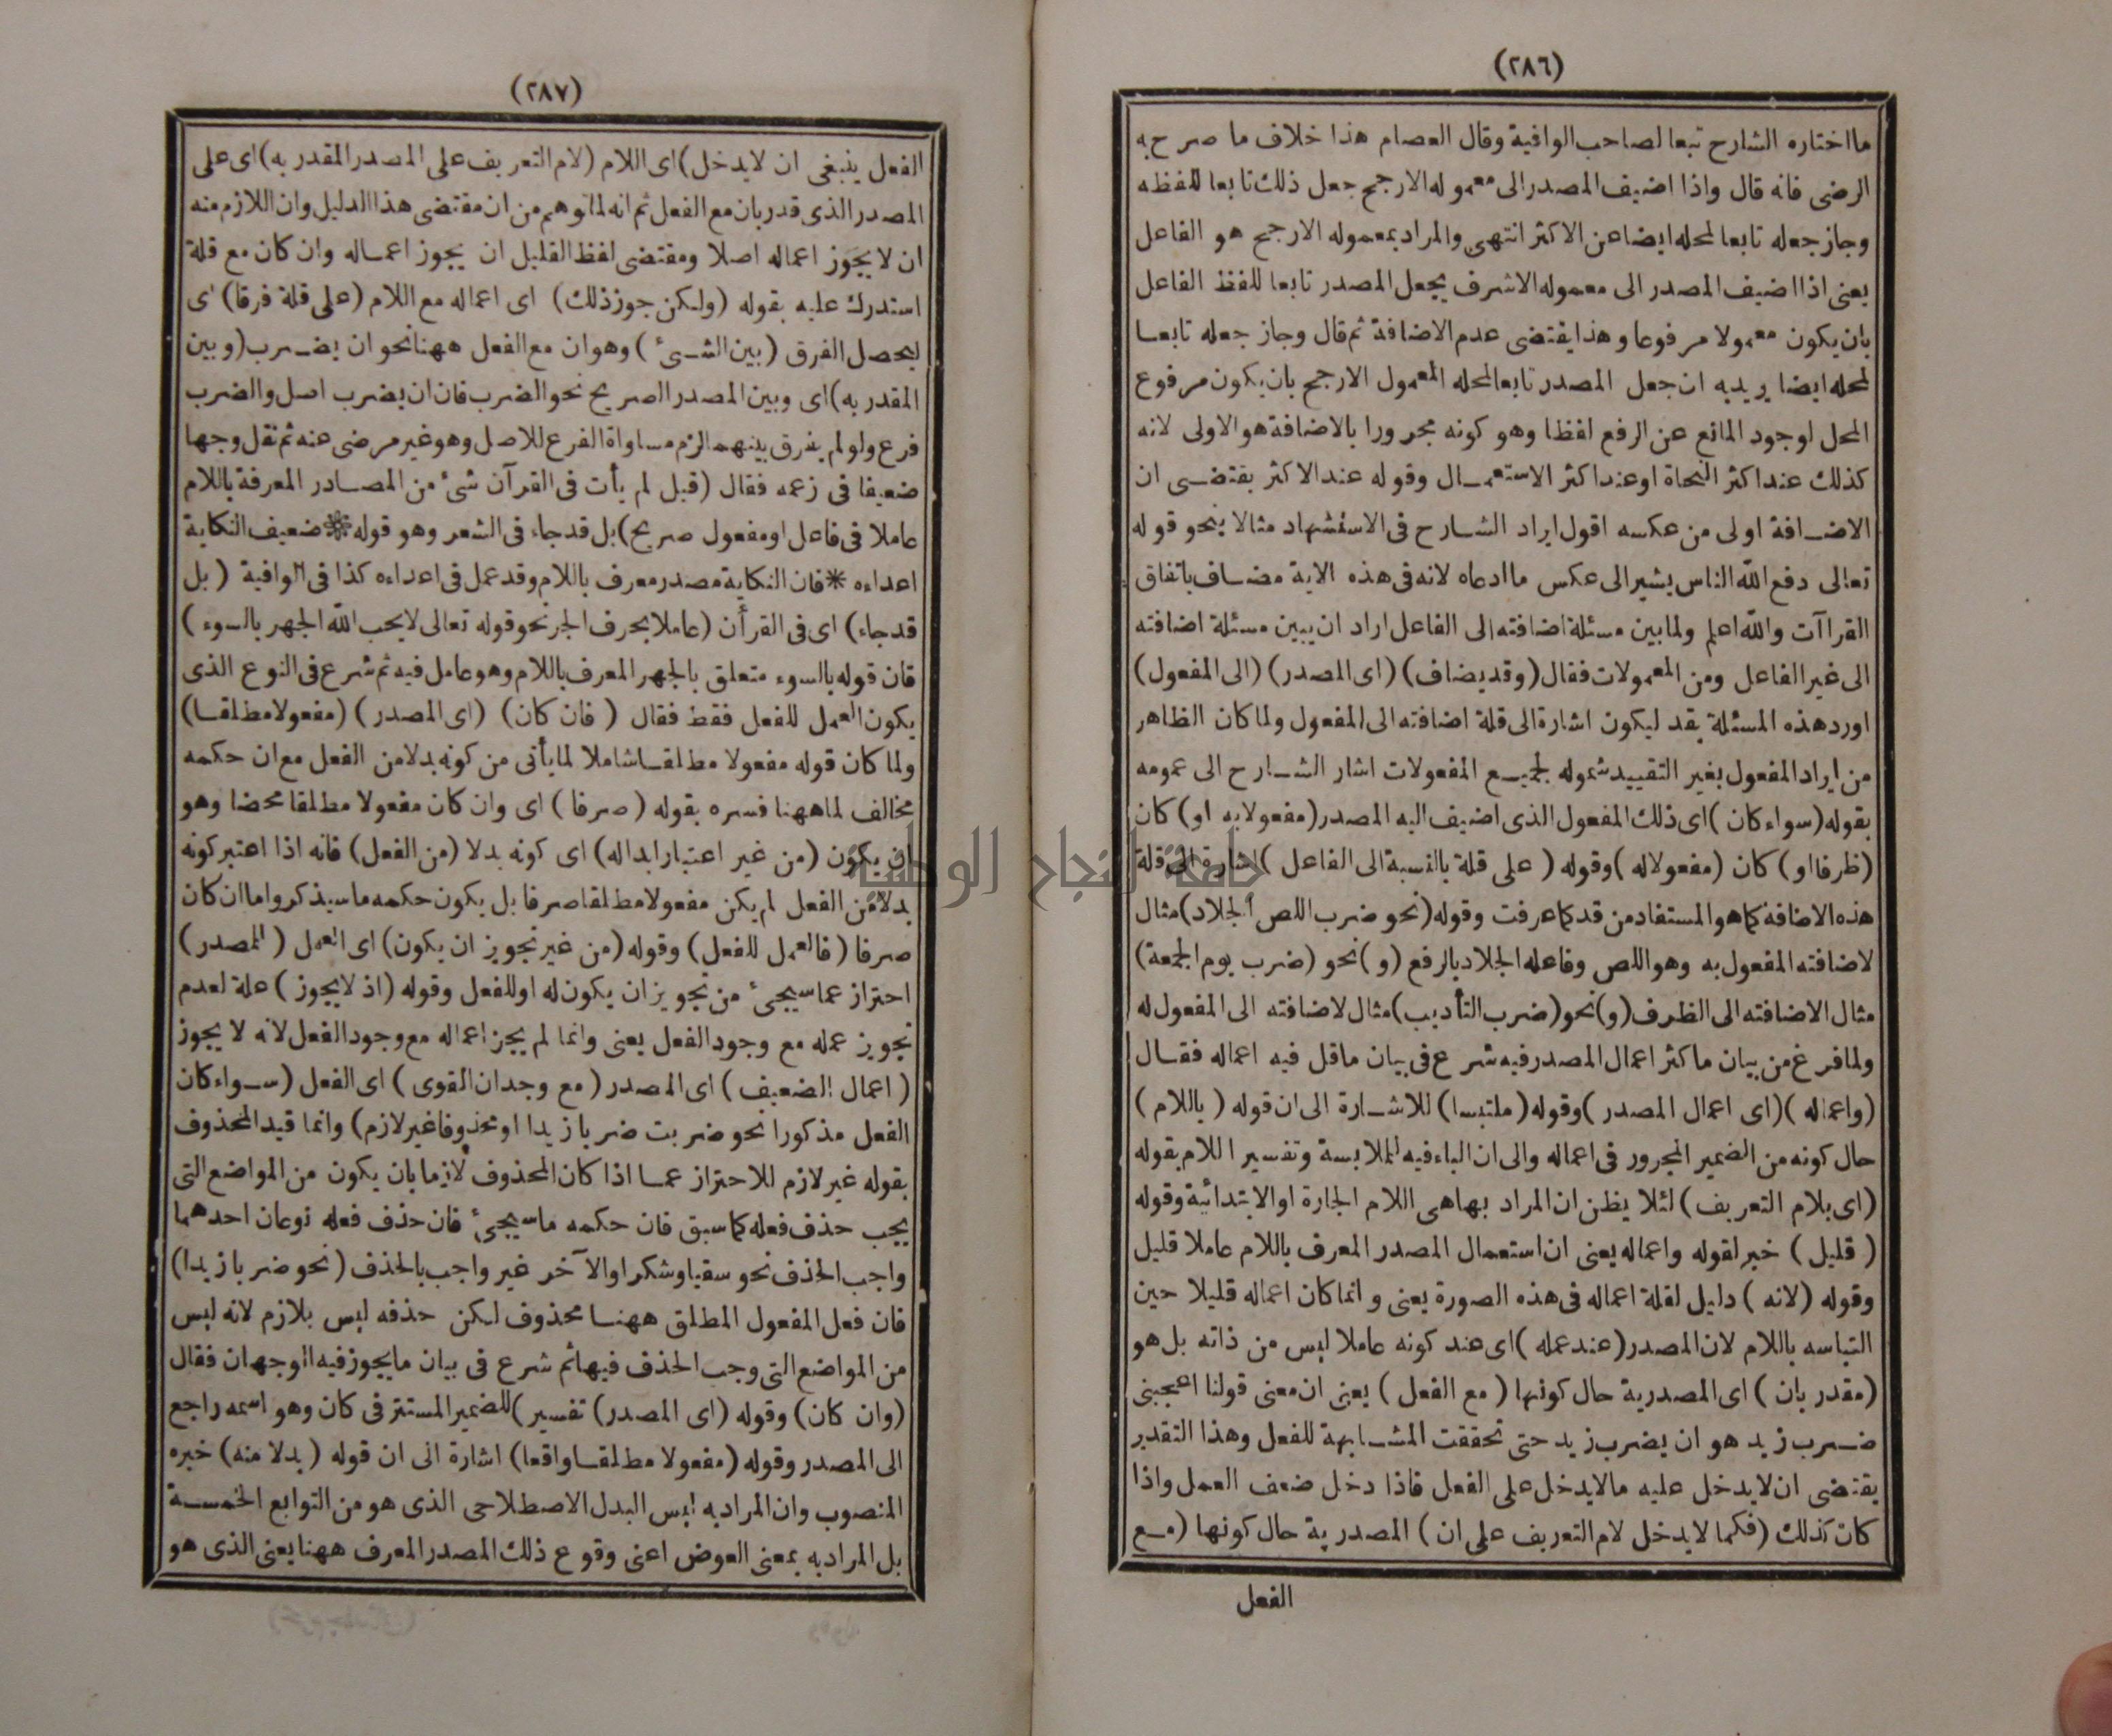 (٢٨٦)
ما اختاره الشارح تبعا لصاحب الوافية وقال العصام هذا خلاف ما صرح به
الرضى فانه قال واذا اضيف المصدر الى معموله الارجح جعل ذلك تابعا للفظه
وجاز جعله تابعا لمحله ايضا عن الاكثر انتهى والمراد بمعموله الارجح هو الفاعل
يعنى اذا اضيف المصدر الى معموله الاشرف يجعل المصدر تابعا للفظ الفاعل
بان يكون معمولا مرفوعا وهذا يقتضى عدم الاضافة ثم قال وجاز جعله تابعا
لمحله ايضا يريد به ان جعل المصدر تابعا لمحله المعمول الارجح بان يكون مرفوع
المحل لوجود المانع عن الرفع لفظا وهو كونه مجرورا بالاضافة هو الاولى لانه
كذلك عند اكثر النحاة او عند اكثر الاستعمال وقوله عند الاكثر يقتضى ان
الاضافة اولى من عكسه اقول ايراد الشارح فى الاستشهاد مثالا ينحو قوله
تعالى دفع الله الناس يشير الى عكس ما ادعاه لانه فى هذه الاية مضاف باتفاق
القراآت والله اعلم ولما بين مسئلة اضافته الى الفاعل اراد ان يبين مسئلة اضافته
الى غير الفاعل ومن المعمولات فقال (وقد يضاف) (اى المصدر) (الى المفعول)
اورد هذه المسئلة بقد ليكون اشارة الى قلة اضافته الى المفعول ولما كان الظاهر
من ايراد المفعول بغير التقييد شموله لجميع المفعولات اشار الشارح الى عمومه
بقوله (سواء كان) اى ذلك المفعول الذى اضيف اليه المصدر (مفعولا به او) كان
(ظرفا او) كان (مفعولا له) وقوله (على قلة بالنسبة الى الفاعل) اشارة الى قلة
هذه الاضافة كما هو المستفاد من قد كما عرفت وقوله (نحو ضرب اللص الجلاد) مثال
لاضافته المفعول به وهو اللص وفاعله الجلاد بالرفع (و) نحو (ضرب يوم الجمعة)
مثال الاضافته الى الظرف (و) نحو (ضرب التأديب) مثال لاضافته الى المفعول له
ولما فرغ من بيان ما كثر اعمال المصدر فيه شرع فى بيان ما قل فيه اعماله فقال
(واعماله) (اى اعمال المصدر) وقوله (ملتبسا) للاشارة الى ان قوله (باللام)
حال كونه من الضمير المجرور فى اعماله والى ان الباء فيه للملابسة وتفسير اللام بقوله
(اى بلام التعريف) لئلا يظن ان المراد بها هى اللام الجارة او الابتدائية وقوله
(قليل) خبر لقوله واعماله يعنى ان استعمال المصدر المعرف باللام عاملا قليل
وقوله (لانه) دليل لقلة اعماله فى هذه الصورة يعنى وانما كان اعماله قليلا حين
التباسه باللام لان المصدر (عند عمله) اى عند كونه عاملا ليس من ذاته بل هو
(مقدر بان) اى المصدرية حال كونها (مع الفعل) يعنى ان معنى قولنا اعجبنى
ضرب زيد هو ان يضرب زيد حتى تحققت المشابهة للفعل وهذا التقدير
يقتضى ان لا يدخل عليه ما لا يدخل على الفعل فاذا دخل ضعف العمل واذا
كان كذلك (فكما لا يدخل لام التعريف على ان) المصدرية حال كونها (مع
الفعل
(٢٨٧)
الفعل ينبغى ان لا يدخل) اى اللام (لام التعريف على المصدر المقدر به) اى على
المصدر الذى قدر بان مع الفعل ثم انه لما توهم من ان مقتضى هذا الدليل وان اللازم منه
ان لا يجوز اعماله اصلا ومقتضى لفظ القليل ان يجوز اعماله وان كان مع قلة
استدرك عليه بقوله (ولكن جوز ذلك) اى اعماله مع اللام (على قلة فرقا) اى
ليحصل الفرق (بين الشىء) وهو ان مع الفعل ههنا نحو ان يضرب (وبين
المقدر به) اى وبين المصدر الصريح نحو الضرب فان ان يضرب اصل والضرب
فرع ولو لم يفرق بينهما لزم مساواة الفرع للاصل وهو غير مرضى عنه ثم نقل وجها
ضعيفا فى زعمه فقال (قيل لم يأت فى القرآن شىء من المصادر المعرفة باللام
عاملا فى فاعل او مفعول صريح) بل قد جاء فى الشعر وهو قوله * ضعيف النكاية
اعداءه * فان النكاية مصدر معرف باللام وقد عمل فى اعداءه كذا فى الوافية (بل
قد جاء) اى فى القرأن (عاملا بحرف الجر نحو قوله تعالى لا يحب الله الجهر بالسوء)
فان قوله بالسوء متعلق بالجهر المعرف باللام وهو عامل فيه ثم شرع فى النوع الذى
يكون العمل للفعل فقط فقال (فان كان) (اى المصدر) (مفعولا مطلقا)
ولما كان قوله مفعولا مطلقا شاملا لما يأتى من كونه بدلا من الفعل مع ان حكمه
مخالف لما ههنا فسره بقوله (صرفا) اى وان كان مفعولا مطلقا محضا وهو
ان يكون (من غير اعتبار ابداله) اى كونه بدلا (من الفعل) فانه اذا اعتبر كونه
بدلا من الفعل لم يكن مفعولا مطلقا صرفا بل يكون حكمه ما سيذكر واما ان كان
صرفا (فالعمل للفعل) وقوله (من غير تجويز ان يكون) اى العمل (للمصدر)
احتراز عما سيجىء من تجويز ان يكون له او للفعل وقوله (اذ لا يجوز) علة لعدم
تجويز عمله مع وجود الفعل يعنى وانما لم يجز اعماله مع وجود الفعل لانه لا يجوز
(اعمال الضعيف) اى المصدر (مع وجدان القوى) اى الفعل (سواء كان
الفعل مذكورا نحو ضربت ضربا زيدا او محذوفا غير لازم) وانما قيد المحذوف
بقوله غير لازم للاحتراز عما اذا كان المحذوف لازما بان يكون من المواضع التى
يجب حذف فعله كما سبق فان حكمه ما سيجىء فان حذف فعله نوعان احدهما
واجب الحذف نحو سقيا وشكرا والآخر غير واجب بالحذف (نحو ضربا زيدا)
فان فعل المفعول المطلق ههنا محذوف لكن حذفه ليس بلازم لانه ليس
من المواضع التى وجب الحذف فيها ثم شرع فى بيان ما يجوز فيه الوجهان فقال
(وان كان) وقوله (اى المصدر) تفسير) للضمير المستتر فى كان وهو اسمه راجع
الى المصدر وقوله (مفعولا مطلقا واقعا) اشارة الى ان قوله (بدلا منه) خبره
المنصوب وان المراد به ليس البدل الاصطلاحى الذى هو من التوابع الخمسة
بل المراد به بمعنى العوض اعنى وقوع ذلك المصدر المعرف ههنا يعنى الذى هو
جامعة النجاح الوطنية